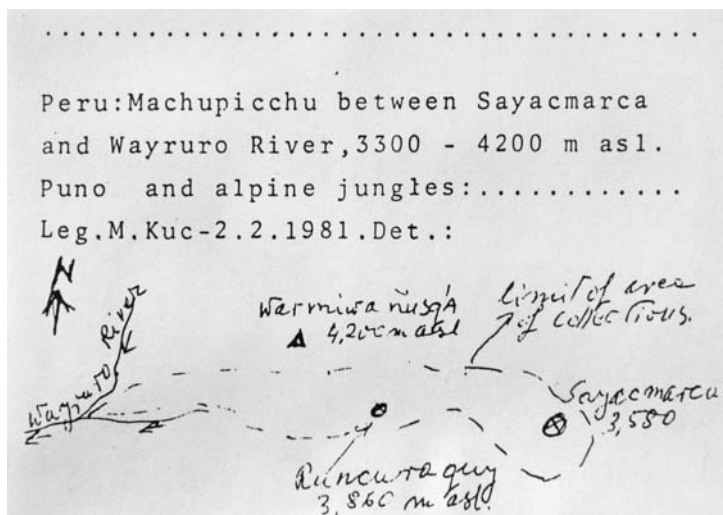 ..............................................
Peru:Machupicchu between Sayacmarca
and Wayruro River,3300 - 4200 m asl.
Puno and alpine jungles:.............
Leg.M.Kuc-2.2.1981.Det.:
N
River
Wayruro
Warmiwañusq'A
4,200m asl
limit of area
of collections.
Sayacmarca
3,580
Runcuraquy
3,860 m asl.